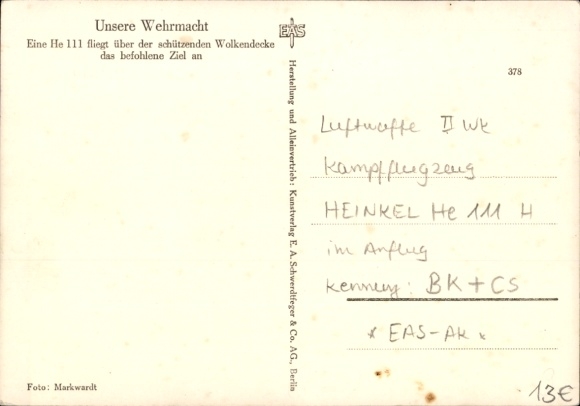 Unsere Wehrmacht
Eine He 111 fliegt über der schützenden Wolkendecke
das befohlene Ziel an
EAS
Herstellung und Alleinvertrieb: Kunstverlag E. A. Schwerdtfeger & Co. AG., Berlin
378
Luftwaffe II WK
Kampfflugzeug
HEINKEL He 111 H
im Anflug
Kennung: BK+CS
* EAS-AK *
Foto: Markwardt
13€